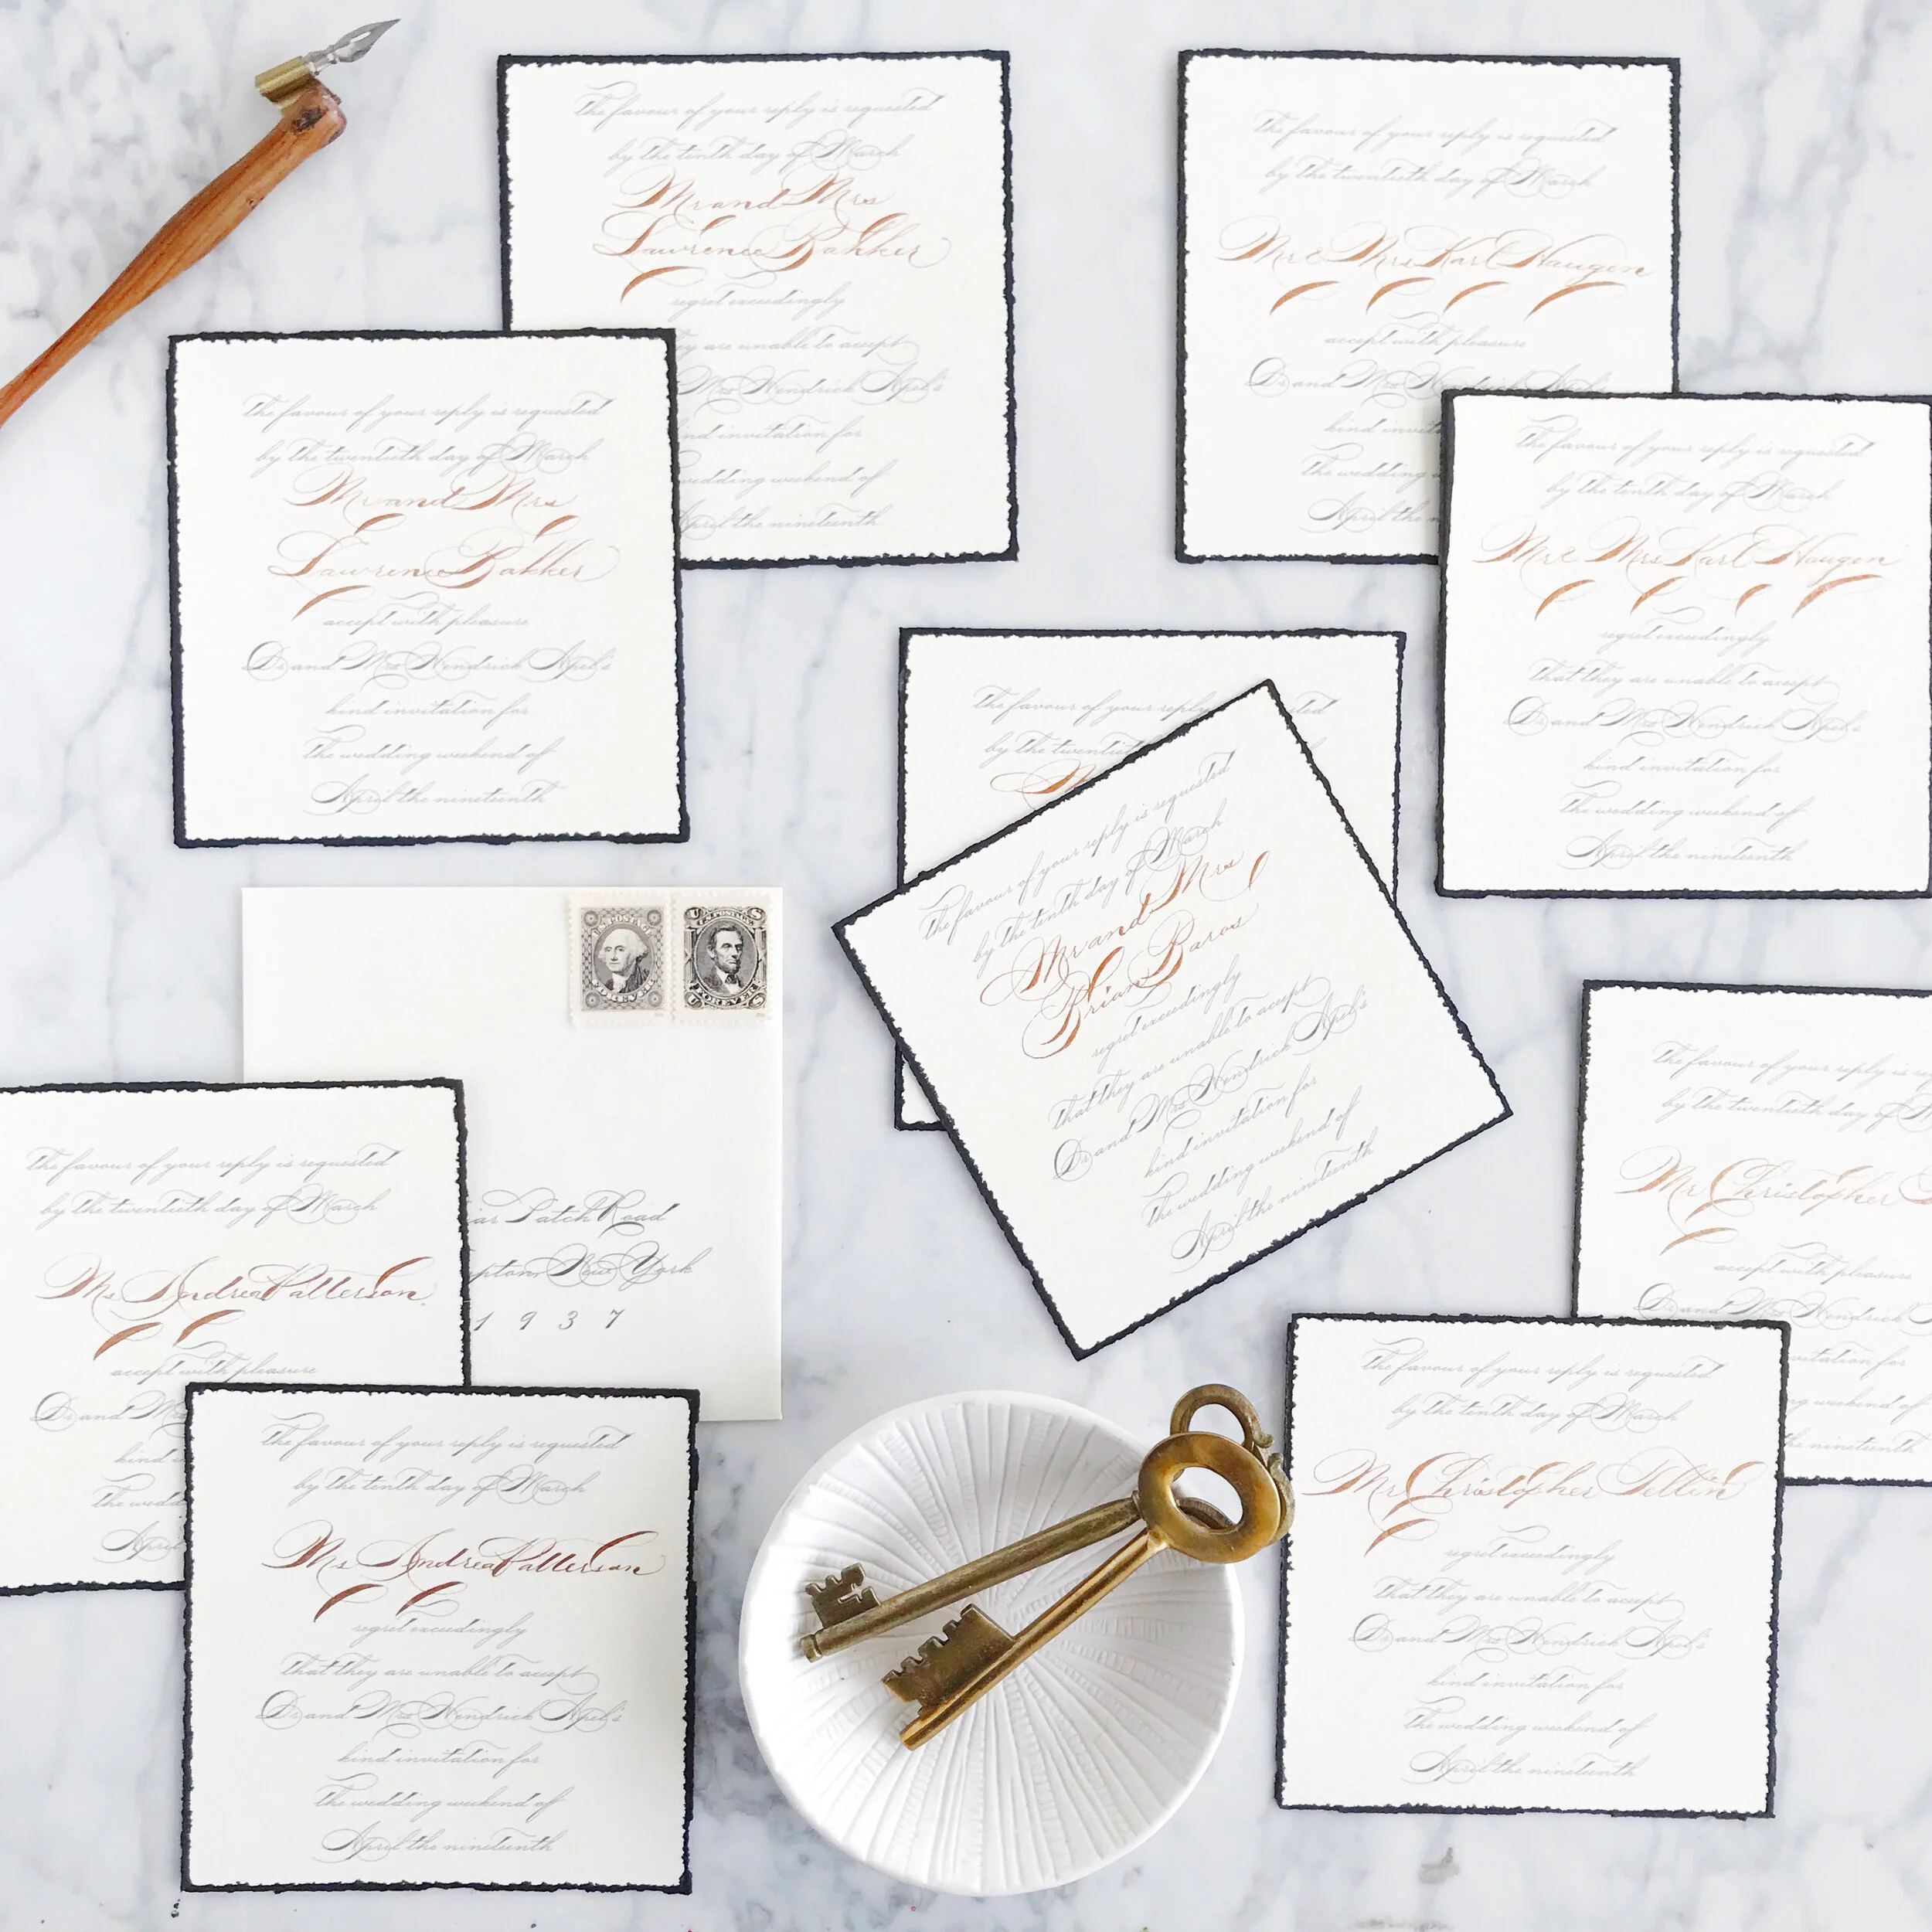 The favour of your reply is requested
by the tenth day of March
Mr and Mrs
Lawrence Bakker
regret exceedingly
they are unable to accept
Mrs Hendrick Apel's
kind invitation for
wedding weekend of
April the nineteenth
The favour of your reply is requested
by the twentieth day of March
Mr & Mrs Karl Haugen
accept with pleasure
Dr and Mrs Hendrick Apel's
kind
the wedding
April the
The favour of your reply is requested
by the twentieth day of March
Mr and Mrs
Lawrence Bakker
accept with pleasure
Dr and Mrs Hendrick Apel's
kind invitation for
the wedding weekend of
April the nineteenth
The favour of your reply is requested
by the tenth day of March
Mr & Mrs Karl Haugen
regret exceedingly
that they are unable to accept
Dr and Mrs Hendrick Apel's
kind invitation for
the wedding weekend of
April the nineteenth
The favour of your reply
by the twentieth
The favour of your reply is requested
by the tenth day of March
Mr and Mrs
Brian Baros
regret exceedingly
that they are unable to accept
Dr and Mrs Hendrick Apel's
kind invitation for
the wedding weekend of
April the nineteenth
U.S. POSTAGE
FOREVER
U.S. POSTAGE
FOREVER
Patch Road
New York
1937
The favour of your reply is requested
by the twentieth day of March
Ms Andrea Patterson
accept with pleasure
Dr and
kind
the
April
The favour of your reply is requested
by the tenth day of March
Ms Andrea Patterson
regret exceedingly
that they are unable to accept
Dr and Mrs Hendrick Apel's
kind invitation for
the wedding weekend of
April the nineteenth
The favour of your reply is
by the twentieth day of
Mr Christopher
accept with pleasure
Dr and Mrs Hendrick
invitation for
weekend of
the nineteenth
The favour of your reply is requested
by the tenth day of March
Mr Christopher Tellin
regret exceedingly
that they are unable to accept
Dr and Mrs Hendrick Apel's
kind invitation for
the wedding weekend of
April the nineteenth